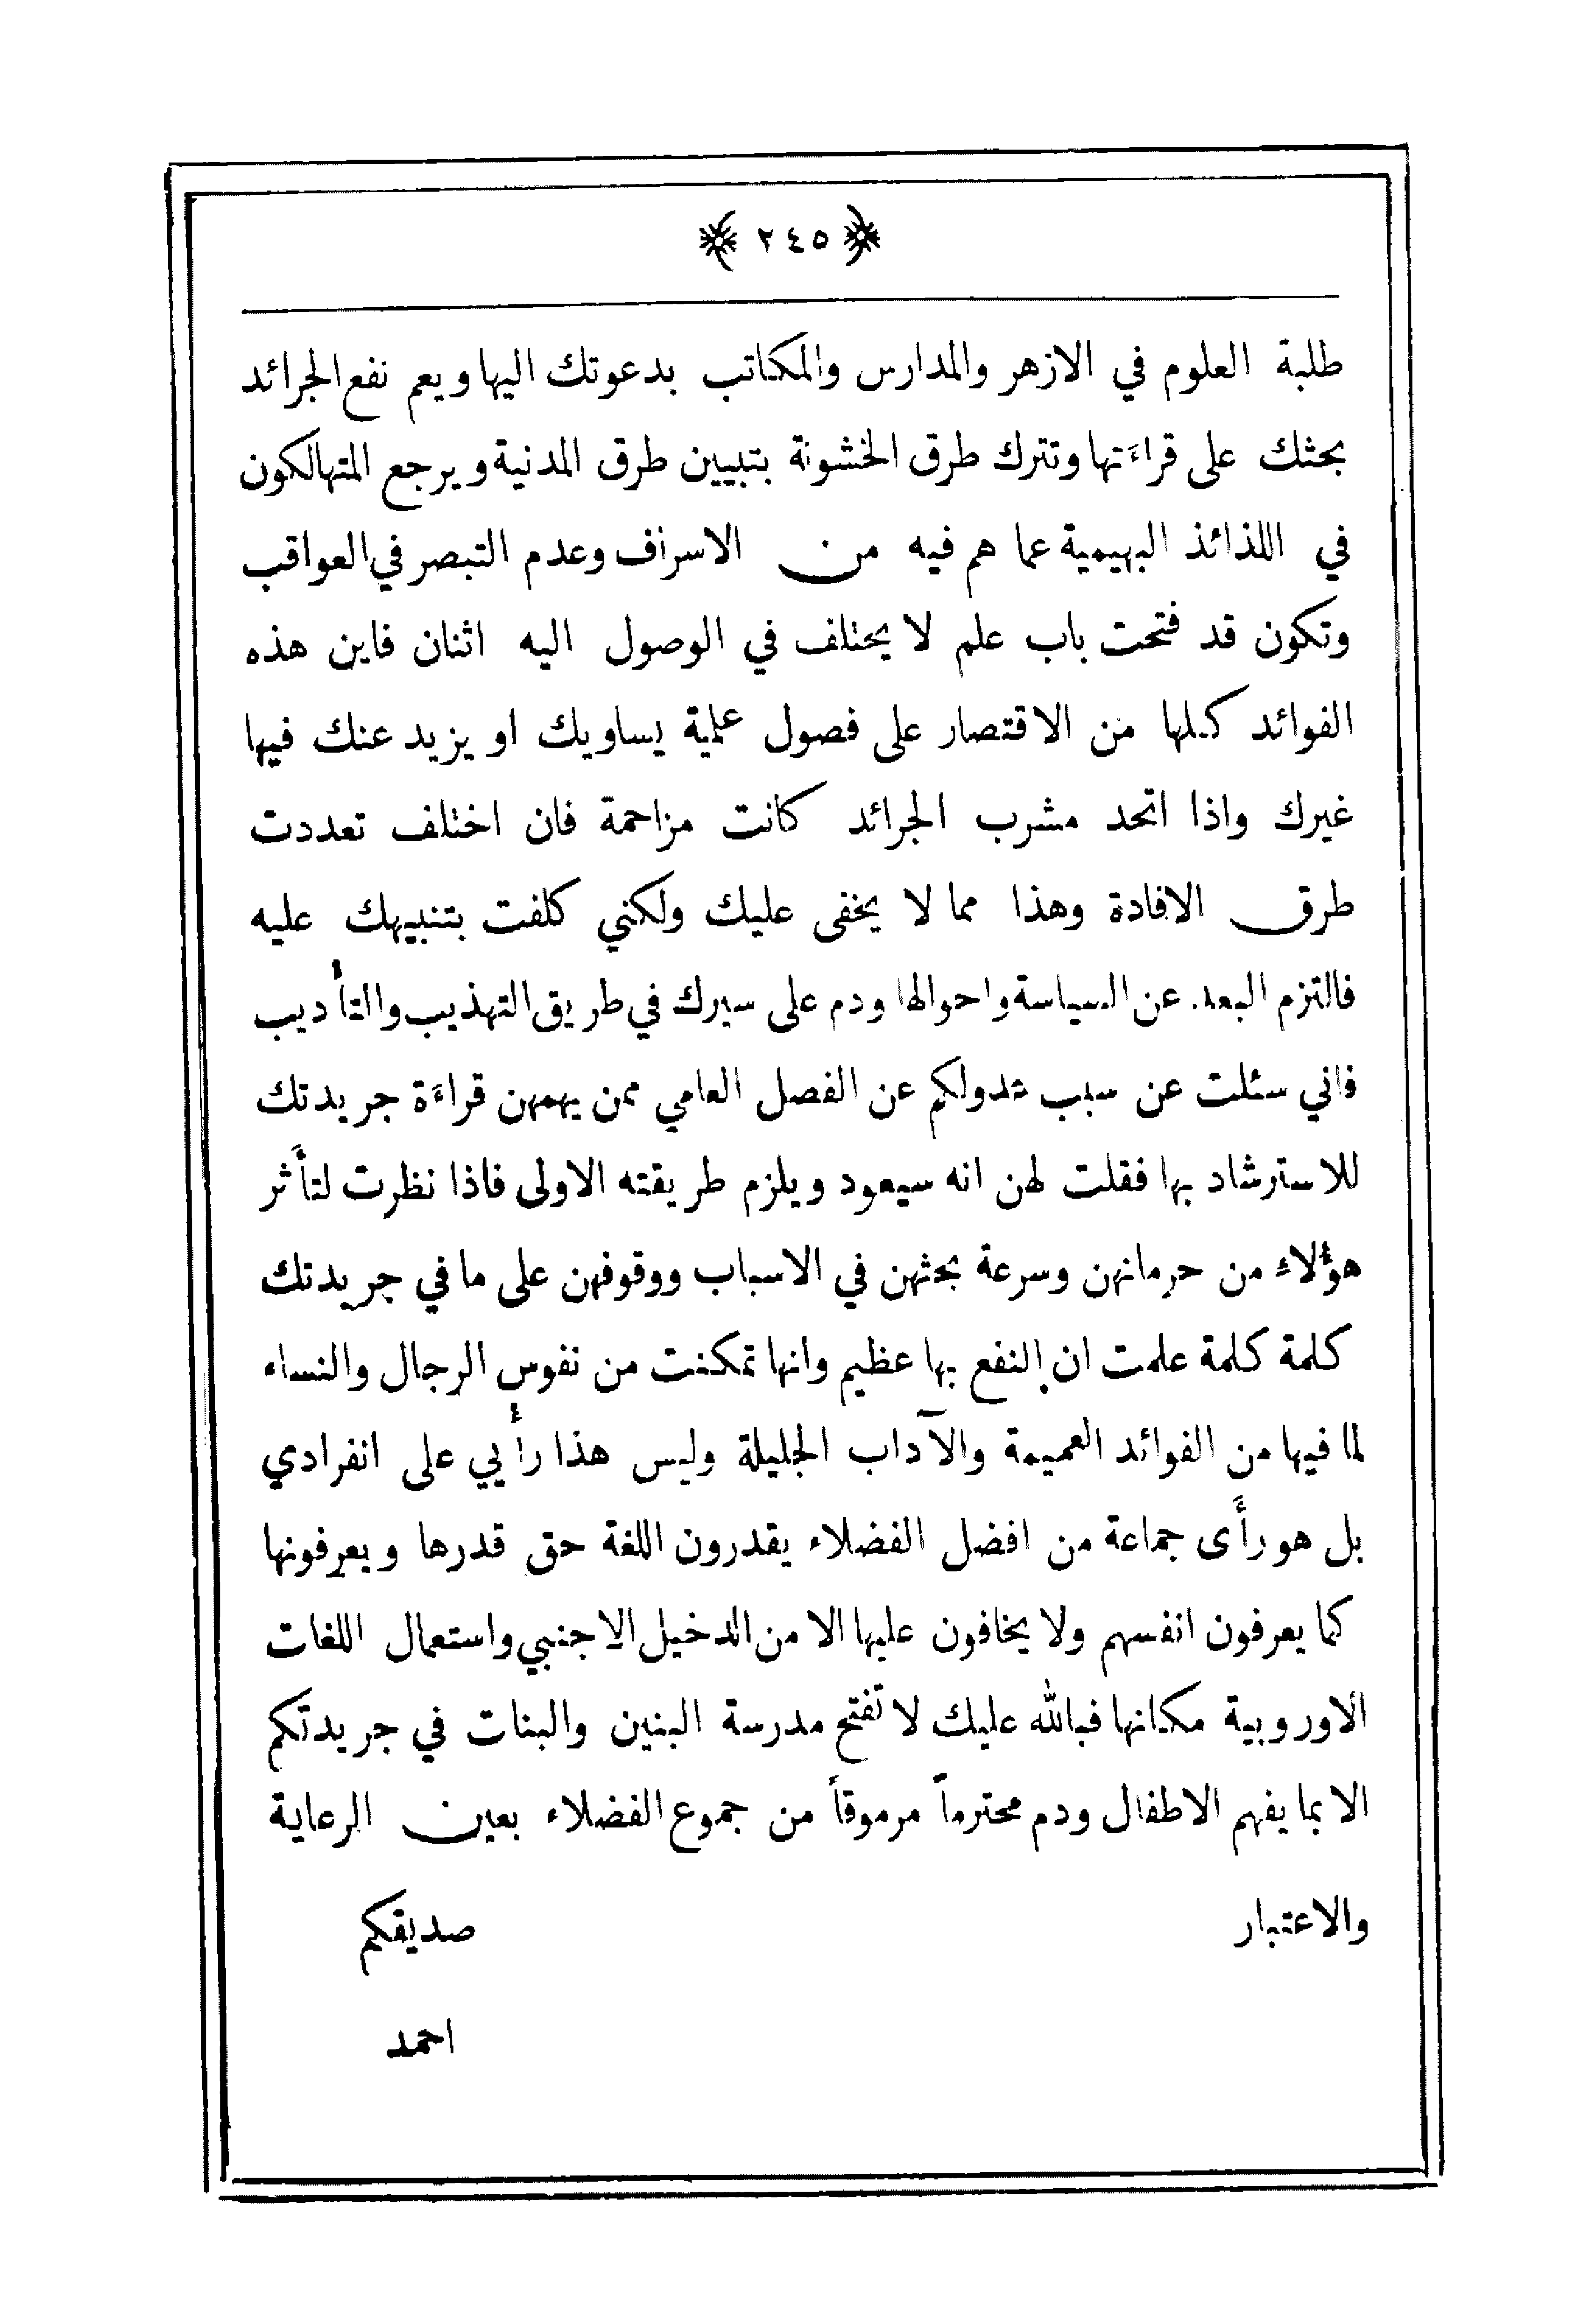 ﴿ ٢٤٥ ﴾
طلبة العلوم في الازهر والمدارس والمكاتب بدعوتك اليها ويعم نفع الجرائد
بحثك على قراءَتها وتترك طرق الخشونة بتبيين طرق المدنية ويرجع المتهالكون
في اللذائذ البهيمية عما هم فيه من الاسراف وعدم التبصر في العواقب
وتكون قد فتحت باب علم لا يختلف في الوصول اليه اثنان فاين هذه
الفوائد كلها من الاقتصار على فصول علمية يساويك او يزيد عنك فيها
غيرك واذا اتحد مشرب الجرائد كانت مزاحمة فان اختلف تعددت
طرق الافادة وهذا مما لا يخفى عليك ولكني كلفت بتنبيهك عليه
فالتزم البعد عن السياسة واحوالها ودم على سيرك في طريق التهذيب والتأديب
فاني سئلت عن سبب عدولكم عن الفصل العامي ممن يهمهن قراءَة جريدتك
للاسترشاد بها فقلت لهن انه سيعود ويلزم طريقته الاولى فاذا نظرت لتأثر
هؤلاء من حرمانهن وسرعة بحثهن في الاسباب ووقوفهن على ما في جريدتك
كلمة كلمة علمت ان النفع بها عظيم وانها تمكنت من نفوس الرجال والنساء
لما فيها من الفوائد العميمة والآداب الجليلة وليس هذا رأيي على انفرادي
بل هو رأى جماعة من افضل الفضلاء يقدرون اللغة حق قدرها ويعرفونها
كما يعرفون انفسهم ولا يخافون عليها الا من الدخيل الاجنبي واستعمال اللغات
الاوروبية مكانها فبالله عليك لا تفتح مدرسة البنين والبنات في جريدتكم
الا بما يفهم الاطفال ودم محترماً مرموقاً من جموع الفضلاء بعين الرعاية
والاعتبار صديقكم
احمد